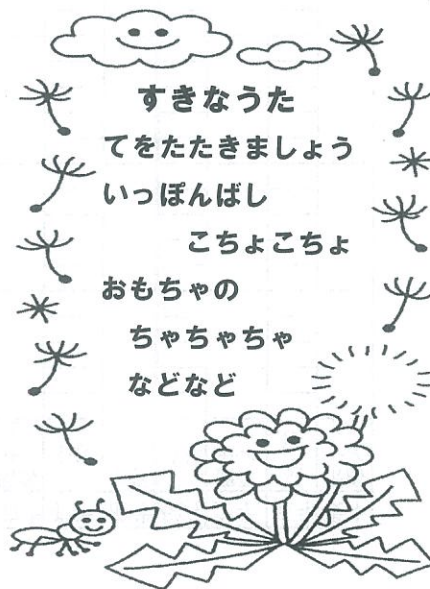 すきなうた
てをたたきましょう
いっぽんばし
こちょこちょ
おもちゃの
ちゃちゃちゃ
などなど